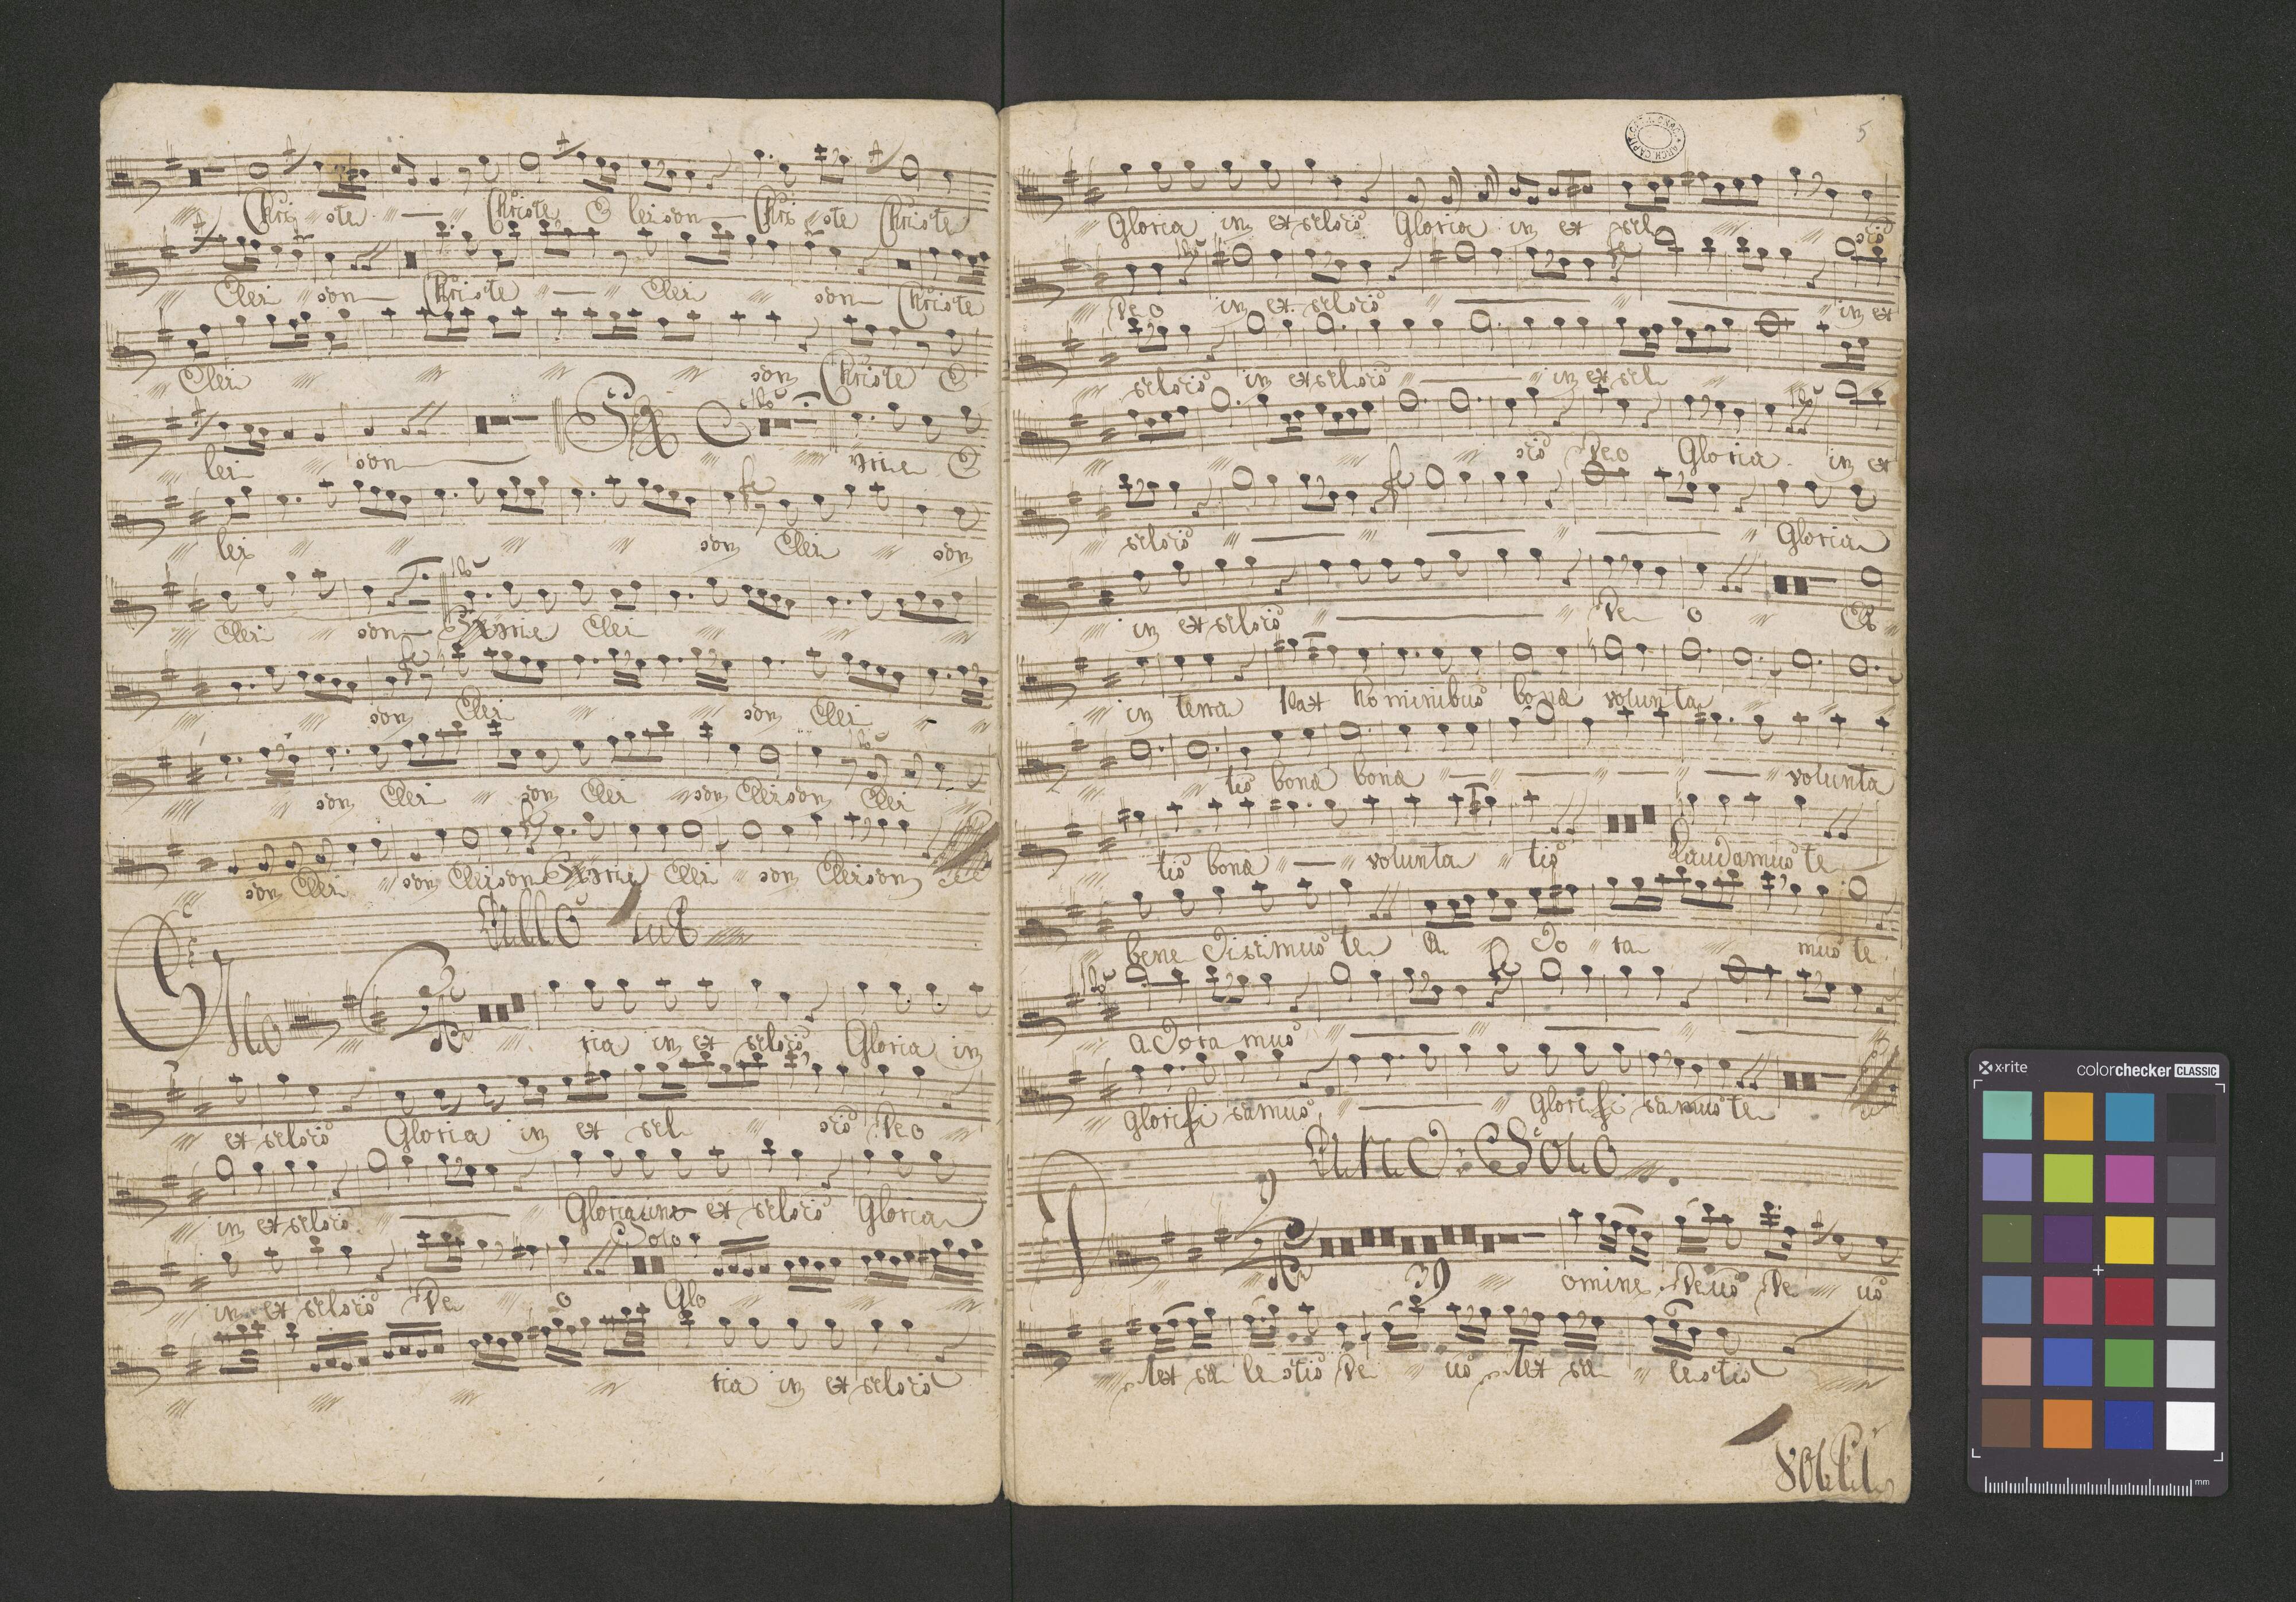 Chri ste Christe E leison Chri ste Christe
Elei son Christe Elei son Christe
Elei son Christe E
lei son po yrie E
lei son Elei son
fe
Elei son Kyrie Elei
po
son Elei son Elei
fe
son Elei son Elei son Eleison Elei
po
son Elei son Eleison Kyrie Elei son Eleison
Glo ria in ex selsis Gloria in
et selsis Gloria in ex sel sis Deo
in ex selsis Gloria in ex selsis Gloria
Solo
in ex selsis De o Glo
ria in ex selsis
5
Gloria in ex selsis Gloria in ex sel sis
po fe
Deo in ex selsis in ex
selsis in ex selsis in ex sel
po
sis Deo Gloria in ex
fe
selsis Gloria
in ex selsis De o Et
in terra Pax hominibus bonæ volunta
tis bonæ bonæ volunta
tis bonæ volunta tis Laudamus te
bene disimus te A do ra mus te
po fe
adora mus
glorifi samus glorifi samus te
Solo
39
Domine Deus De us
Rex se lestis De us Rex se lestis
Volti
x-rite colorchecker CLASSIC
mm